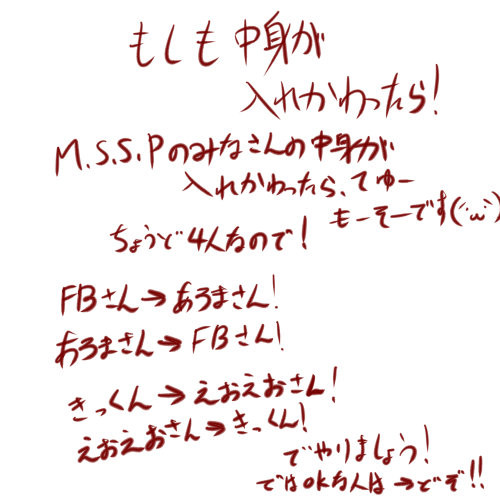 もしも中身が
入れかわったら!
M.S.S.Pのみなさんの中身が
入れかわったら、てゅー
もーそーです(´・ω・`)
ちょうど4人なので!
FBさん→あろまさん!
あろまさん→FBさん!
きっくん→えおえおさん!
えおえおさん→きっくん!
でやりましょう!
ではokな人は→どぞ!!